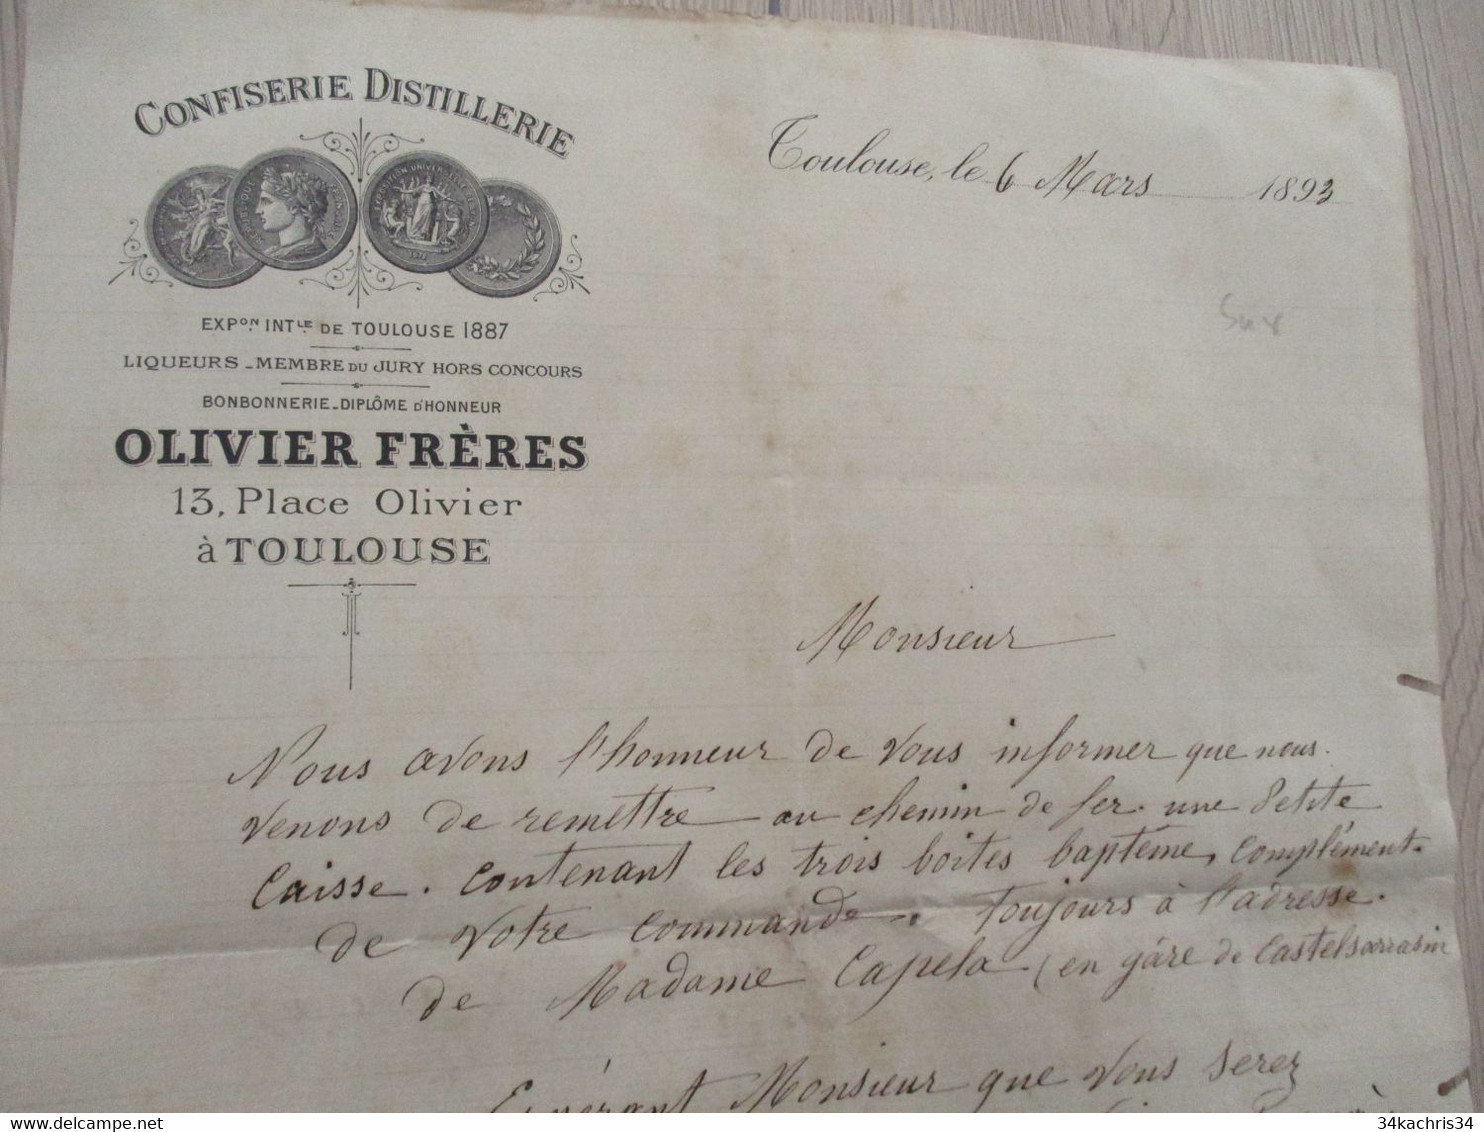 CONFISERIE DISTILLERIE
EXPON INTLE DE TOULOUSE 1887
LIQUEURS - MEMBRE DU JURY HORS CONCOURS
BONBONNERIE - DIPLÔME D'HONNEUR
OLIVIER FRÈRES
13, Place Olivier
à TOULOUSE
Toulouse, le 6 Mars 1893
Monsieur
Nous avons l'honneur de vous informer que nous
venons de remettre au chemin de fer. une Petite
Caisse. contenant les trois boites baptême, complément.
de votre commande. toujours à l'adresse.
de Madame Capela (en gâre de Castelsarrasin
Espérant Monsieur que vous serez
34kachris34